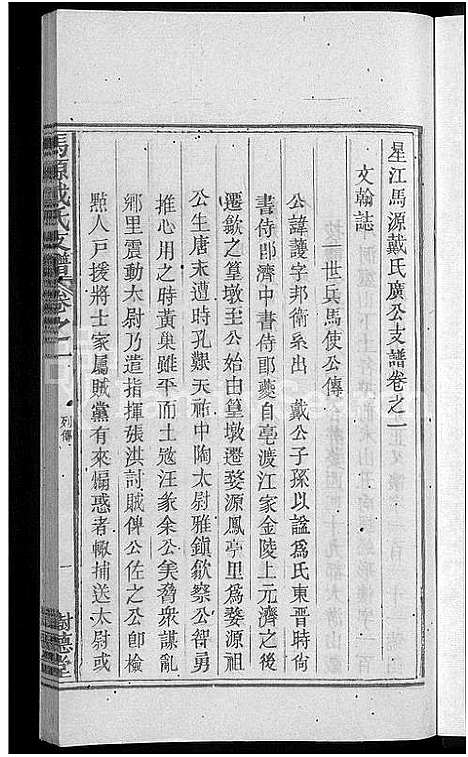 星江馬源戴氏廣公支譜卷之一
文翰誌
一世兵馬使公傳
公諱護字邦衛系出 戴公子孫以諡爲氏東晉時尙
書侍郎濟中書侍郎夔自亳渡江家金陵上元濟之後
遷歙之篁墩至公始由篁墩遷婺源鳳亭里爲婺源祖
公生唐末遭時孔艱天祐中陶太尉雅鎮歙察公智勇
推心用之時黃巢雖平而土宼汪𧰼余公美脅衆謀亂
鄉里震動太尉乃遣指揮張洪討賊俾公佐之公卽檢
㸃人戸援將士家屬賊黨有來煽惑者輙捕送太尉或
馬源戴氏支譜 卷之一 列傳 一 樹德堂